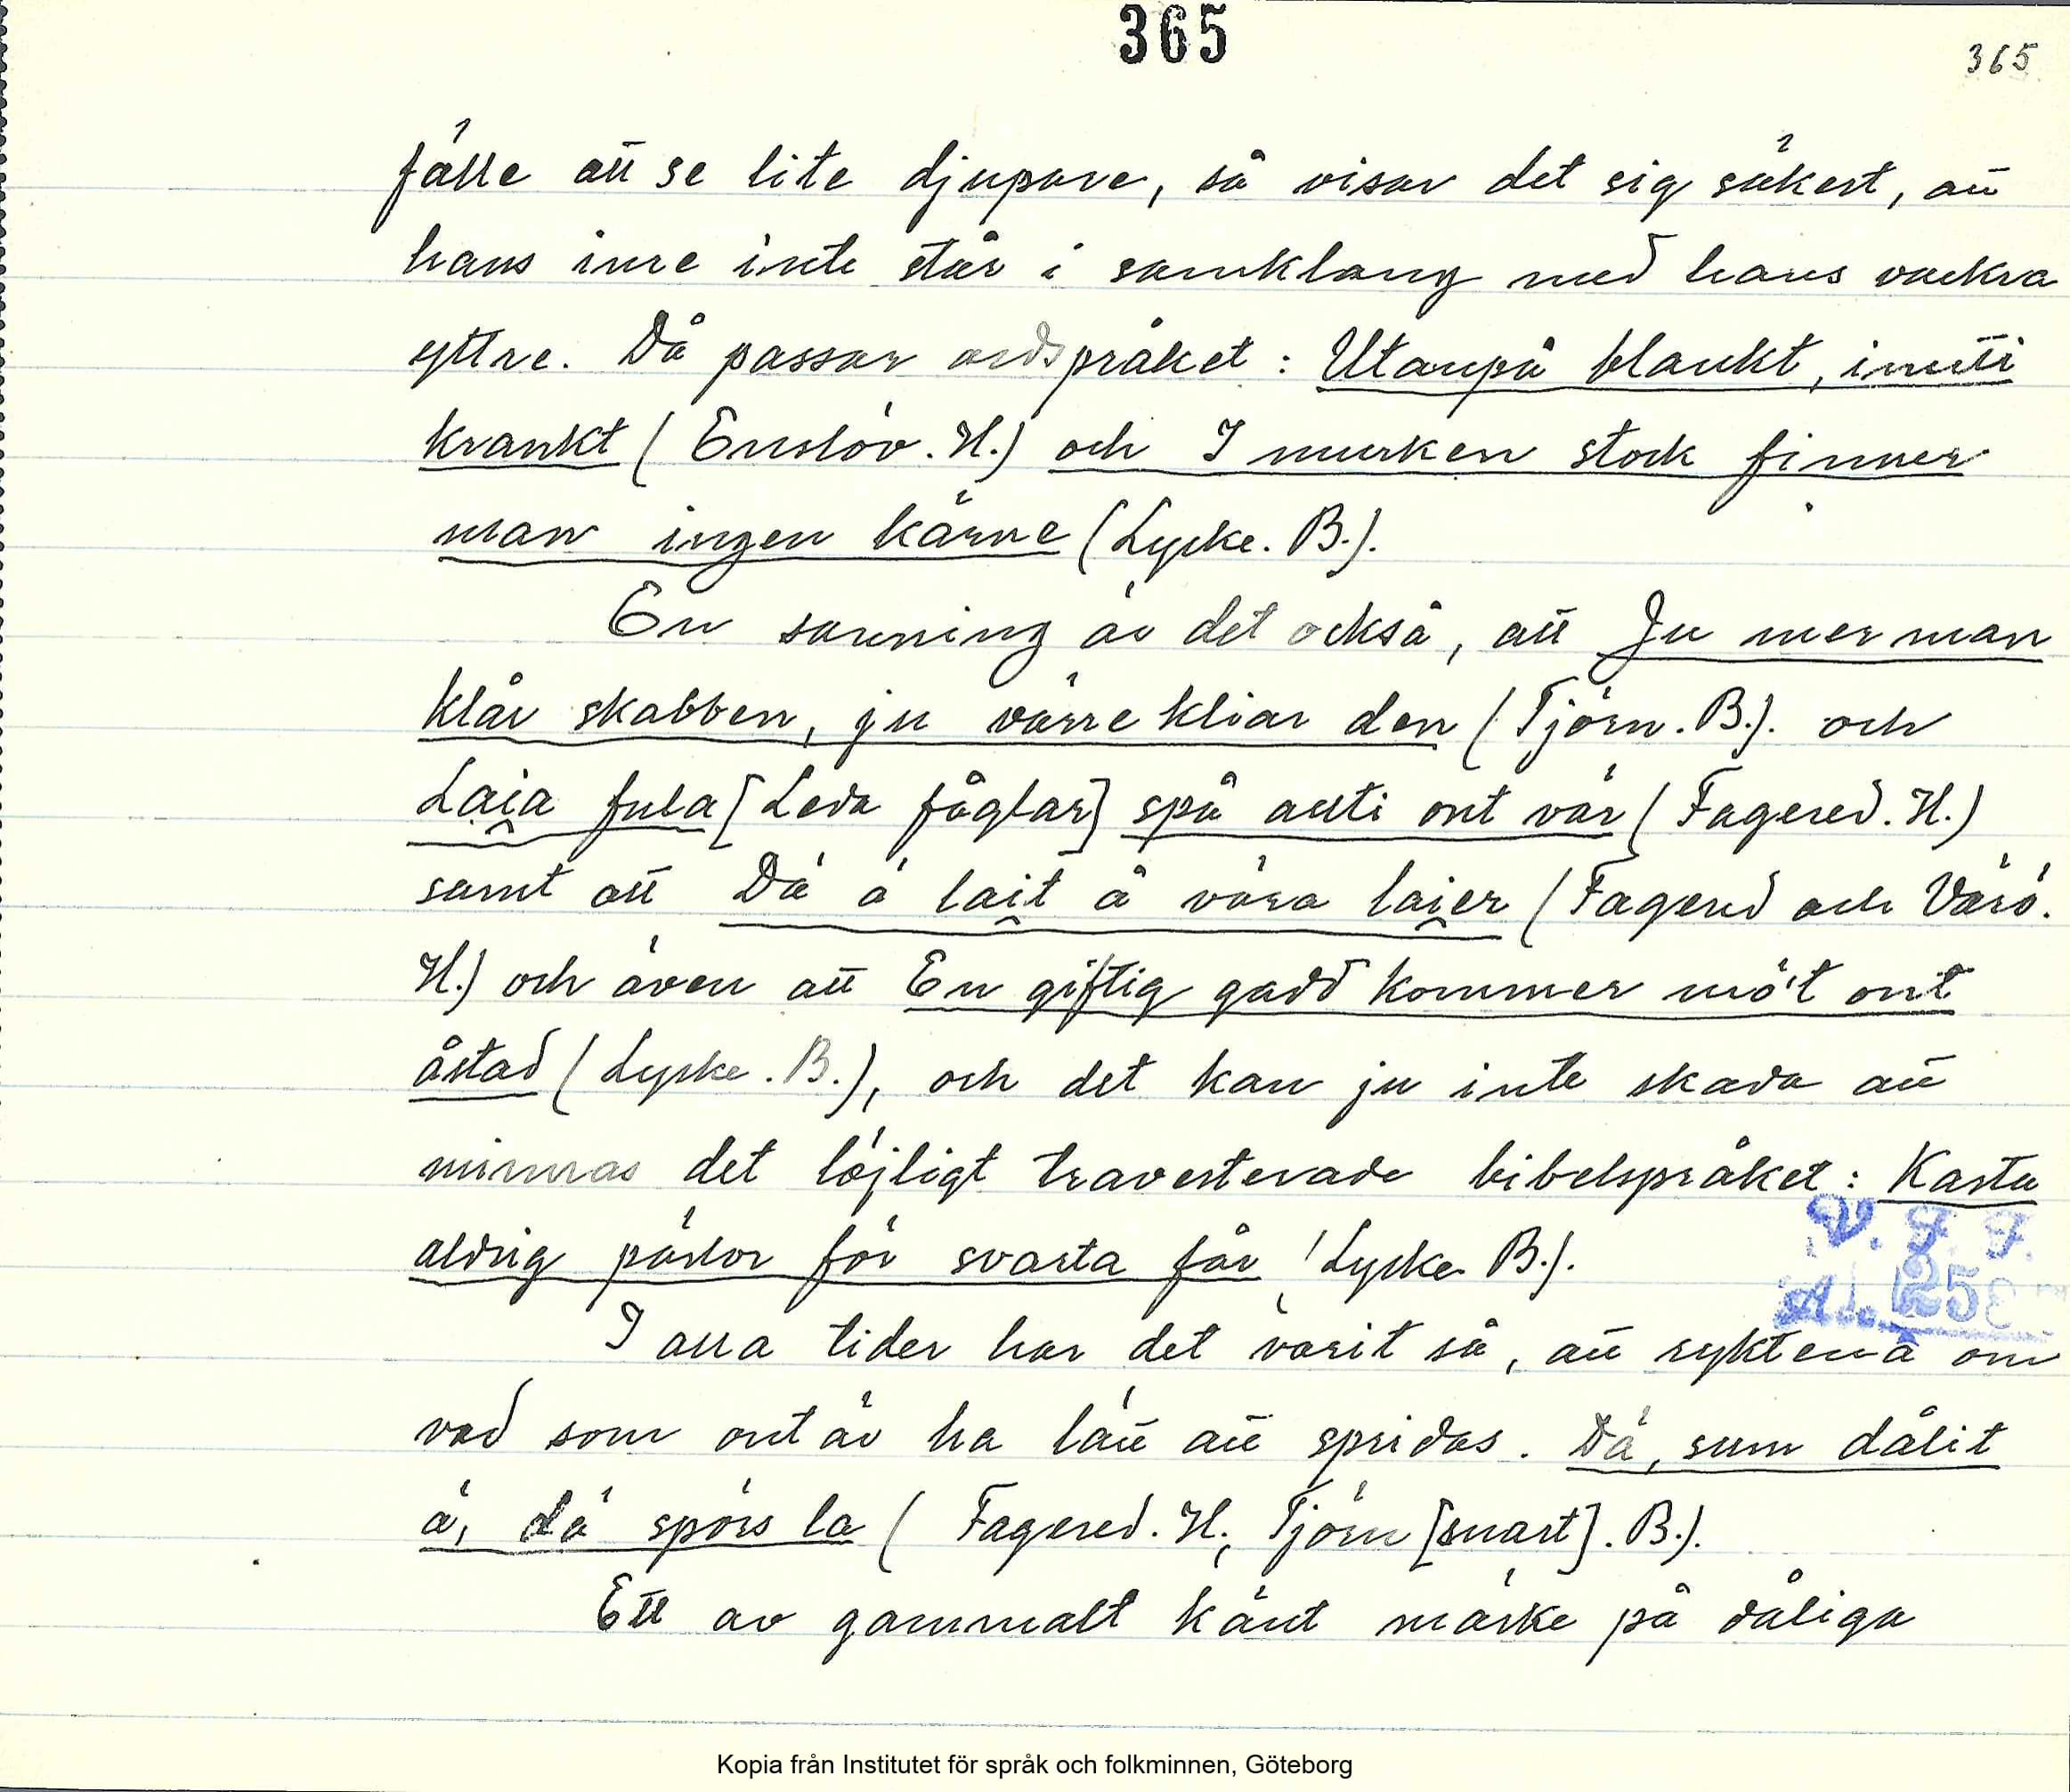 365
365
fälle att se lite djupare, så visar det sig säkert, att
hans inre inte står i samklang med hans vackra
yttre. Då passar ordspråket: Utanpå blankt, inuti
krankt (Enslöv. H.) och I murken stock finner
man ingen kärne (Lycke. B.).
En sanning är det också, att Ju mer man
klår skabben, ju värre kliar den (Tjörn. B.). och
Laia fula [Leda fåglar] spå allti ont vär (Fagered. H.)
samt att Dä ä lait å vära laier (Fagered och Värö.
H.) och även att En giftig gadd kommer mö't ont
åstad (Lycke. B.), och det kan ju inte skada att
minnas det löjligt travesterade bibelspråket: Kasta
aldrig pärlor för svarta får (Lycke B.).
V. F. F.
I alla tider har det varit så, att ryktena om
vad som ont är ha lätt att spridas. Dä, sum dålit
ä, dä spörs la (Fagered. H; Tjörn [snart]. B.).
Ett av gammalt känt märke på dåliga
Kopia från Institutet för språk och folkminnen, Göteborg